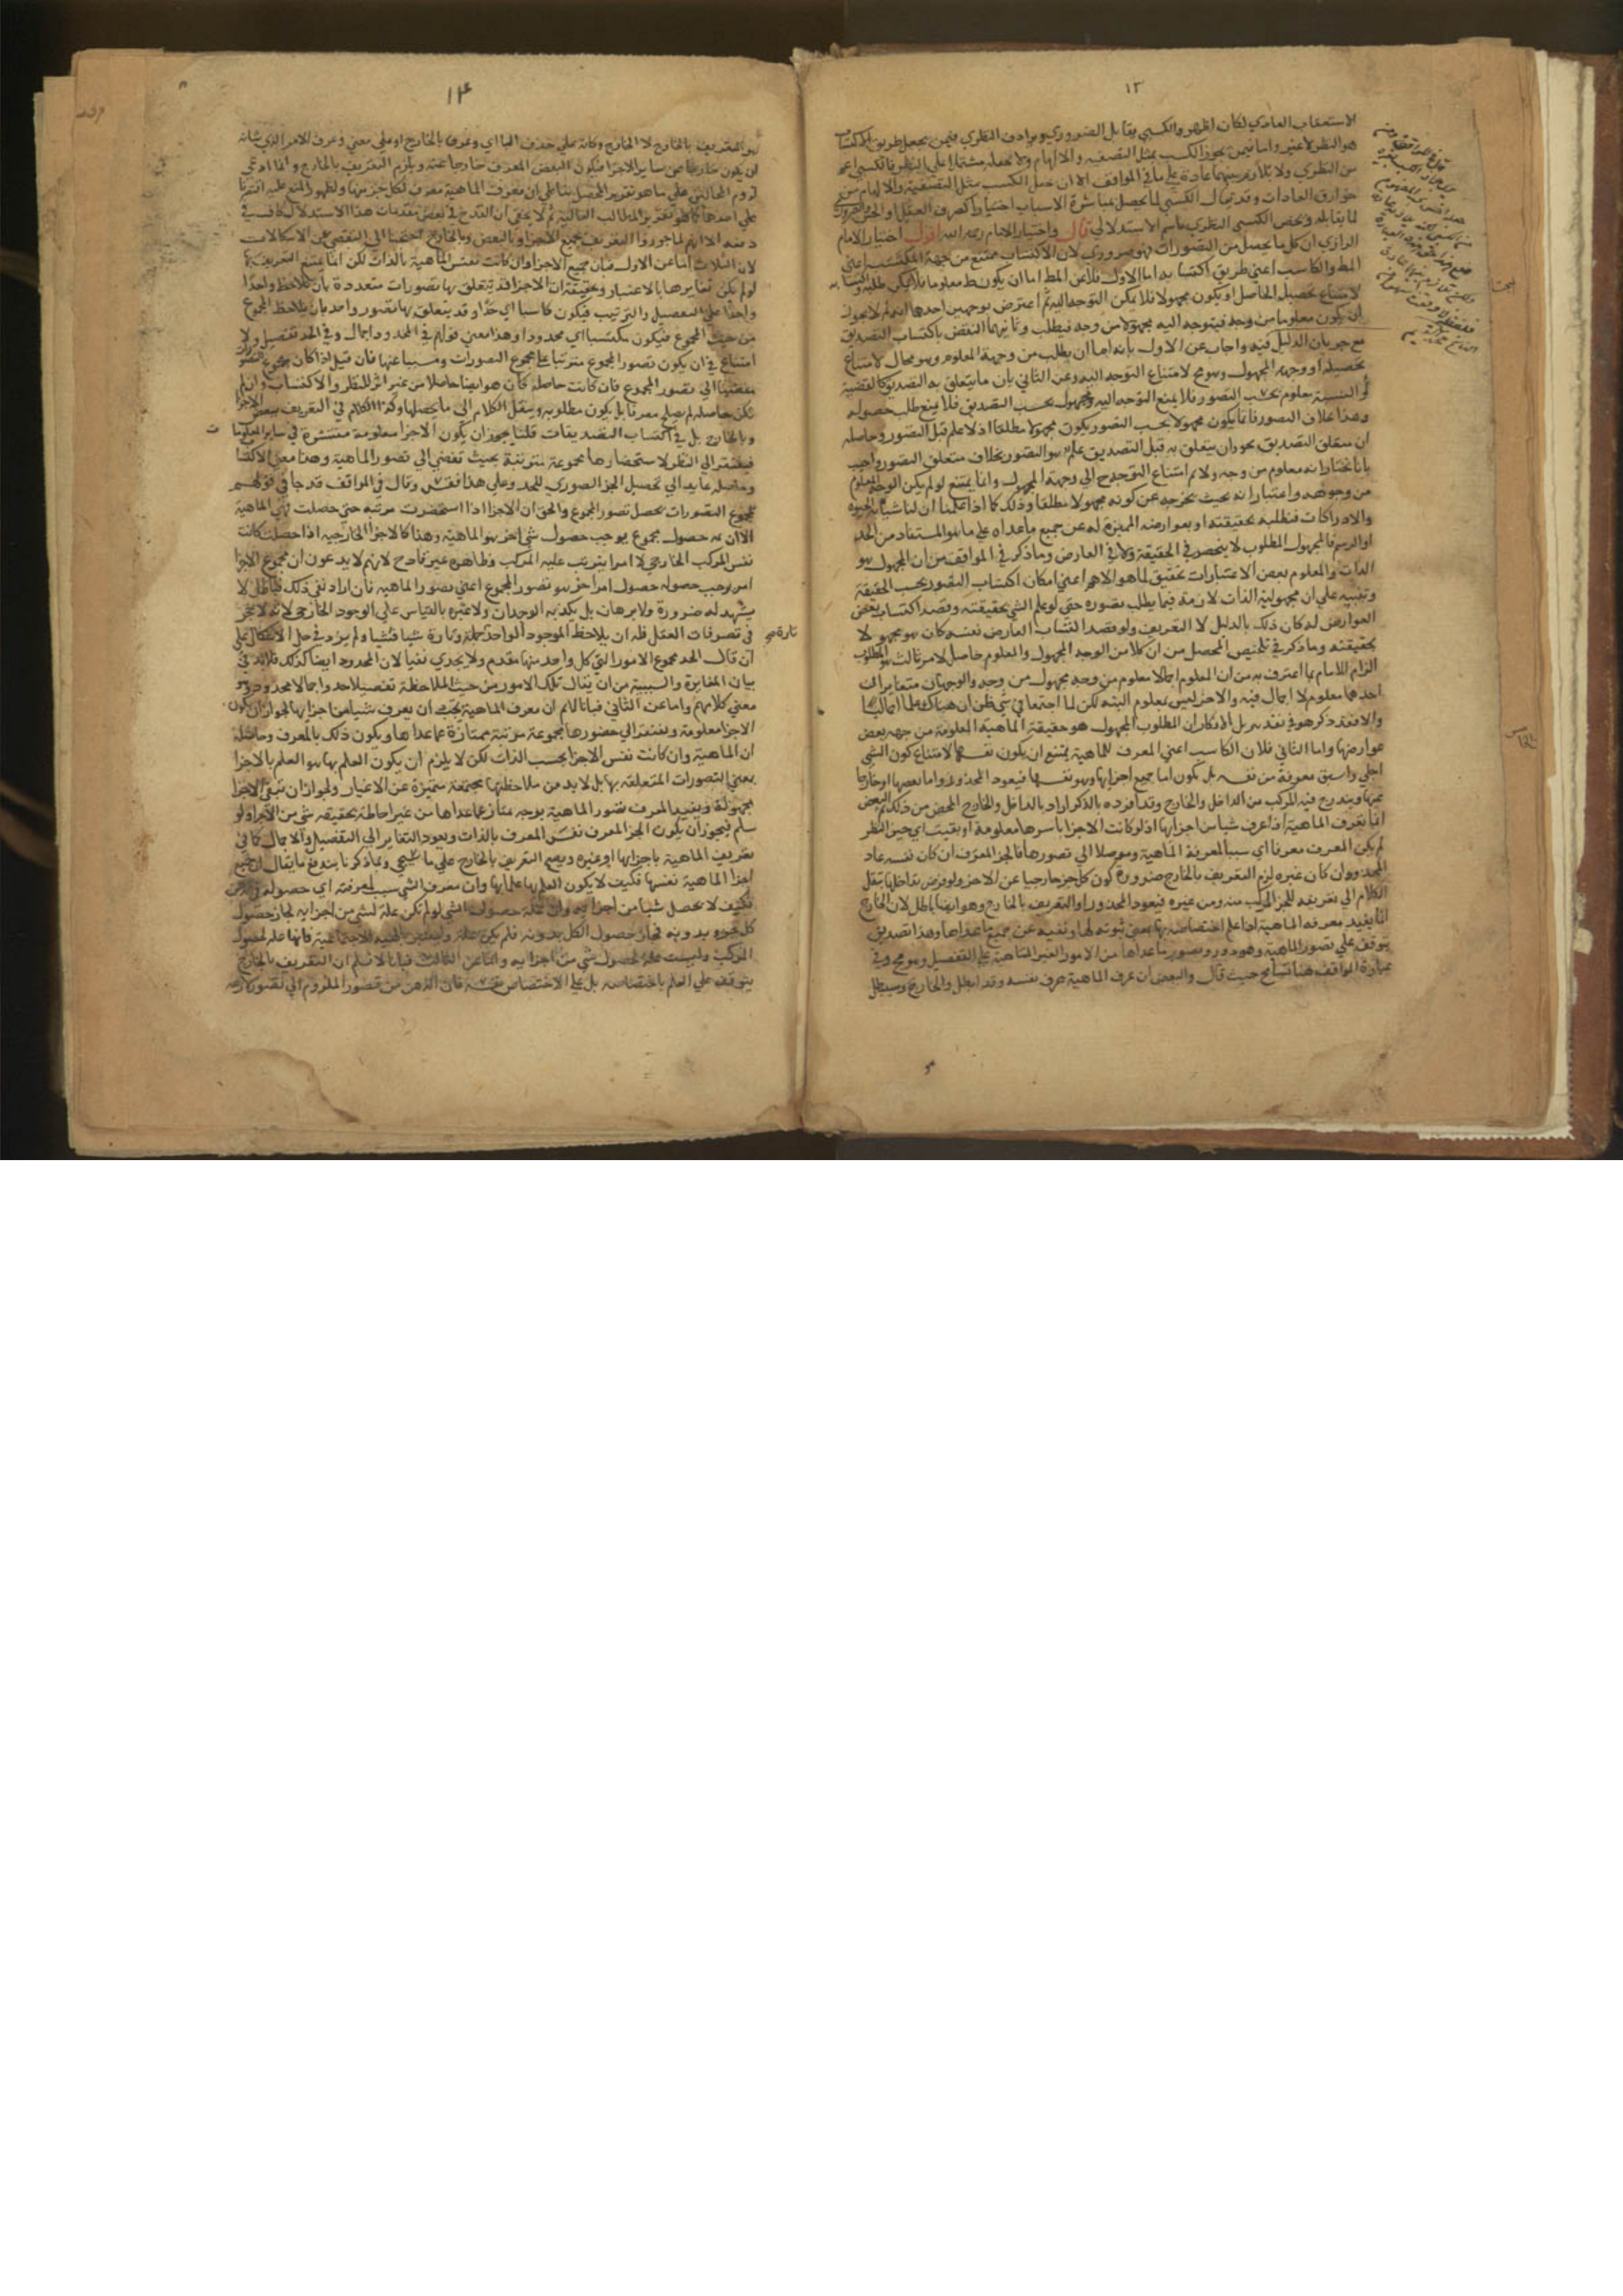 ١٣
الاستعقاب العادي لكان اظهر والكسبي يقابل الضروري ويرادف النظري فيمن يجعل طريق الاكتساب
هو النظر لا غير واما فيمن يجوز الكسب بمثل التصفية والالهام ولا يجعله مشتملا على النظر فالكسبي اعم
من النظري ولا تلازم بينهما عادة على ما في المواقف الا ان مثل الكسب بمثل التصفية والالهام من
خوارق العادات وقد يقال الكسبي لما يحصل بمباشرة الاسباب اختيارا كصرف العقل او الحس والضروري
لما يقابله ويخص الكسبي النظري باسم الاستدلالي قال واختيار الامام رحمه الله اقول اختيار الامام
الرازي ان كل ما يحصل من التصورات فهو ضروري لان الاكتساب ممتنع من جهة المكتسب اعني
المط والكاسب اعني طريق اكتسابه اما الاول فلان المط اما ان يكون معلوما فلا يمكن طلبه واكتسابه
لامتناع تحصيل الحاصل او يكون مجهولا فلا يمكن التوجه اليه ثم اعترض بوجهين احدهما انه لم لا يجوز
ان يكون معلوما من وجه فيتوجه اليه مجهولا من وجه فيطلب وثانيهما النقض باكتساب التصديق
مع جريان الدليل فيه واجاب عن الاول بانه اما ان يطلب من وجهه المعلوم وهو محال لامتناع
تحصيله او وجهه المجهول وهو مح لامتناع التوجه اليه وعن الثاني بان ما يتعلق به التصديق كالقضية
او النسبة معلوم بحسب التصور فلا يمنع التوجه اليه ومجهول بحسب التصديق فلا يمنع طلب حصوله
وهذا بخلاف التصور فان ما يكون مجهولا بحسب التصور يكون مجهولا مطلقا اذ لا علم قبل التصور وحاصله
ان متعلق التصديق يجوز ان يتعلق به قبل التصديق علم هو التصور بخلاف متعلق التصور واجيب
بانا نختار انه معلوم من وجه ولا نم امتناع التوجه ح الى وجهه المجهول وانما يمتنع لو لم يكن الوجه المعلوم
من وجوهه واعتباراته بحيث يخرجه عن كونه مجهولا مطلقا وذلك كما اذا علمنا ان لنا شيئا به الحيوة
والادراكات فنطلبه بحقيقته او بعوارضه المميزة له عن جميع ما عداه على ما هو المستفاد من الحد
او الرسم فالمجهول المطلوب لا ينحصر في الحقيقة ولا في العارض وما ذكر في المواقف من ان المجهول هو
الذات والمعلوم بعض الاعتبارات تحقيق لما هو الاهم اعني امكان اكتساب التصور بحسب الحقيقة
وتنبيه على ان مجهولية الذات لازمة فيما يطلب تصوره حتى لو علم الشي بحقيقته وقصد اكتساب بعض
العوارض له كان ذلك بالدليل لا التعريف ولو قصد اكتساب العارض نفسه كان هو مجهولا
بحقيقته وما ذكر في تلخيص المحصل من ان كلا من الوجه المجهول والمعلوم حاصل لامر ثالث هو المطلوب
الزام للامام بما اعترف به من ان المعلوم اجمالا معلوم من وجه مجهول من وجه والوجهان متغايران
احدهما معلوم لا اجمال فيه والاخر ليس بمعلوم البتة لكن لما اجتمعا في شي ظن ان هناك علما اجماليا
والا فقد ذكر هو في نقد تنزيل الافكار ان المطلوب المجهول هو حقيقة الماهية المعلومة من جهة بعض
عوارضها واما الثاني فلان الكاسب اعني المعرف للماهية يمتنع ان يكون نفسها لامتناع كون الشي
اجلى واسبق معرفة من نفسه بل يكون اما جميع اجزائها وهو نفسها فيعود المحذور واما بعضها او خارجا
عنها ويندرج فيه المركب من الداخل والخارج وقد افرده بالذكر اراد بالداخل والخارج المحض من ذلك ثم البعض
انما يعرف الماهية اذا عرف شيا من اجزائها اذ لو كانت الاجزا باسرها معلومة او بقيت اي حين النظر
لم يكن المعرف معرفا اي سببا لمعرفة الماهية وموصلا الى تصورها فالجزا المعرف ان كان نفسه عاد
المحذور وان كان غيره لزم التعريف بالخارج ضرورة كون كل جز خارجا عن الاخر ولو فرض تداخلها ننقل
الكلام الى تعريفه للجزا المركب منه ومن غيره فيعود المحذور او التعريف بالخارج وهو ايضا باطل لان الخارج
انما يفيد معرفة الماهية اذا علم اختصاصه بها بمعنى ثبوته لها ونفيه عن جميع ما عداها وهذا تصديق
يتوقف على تصور الماهية وهو دور وتصور ما عداها من الامور الغير المتناهية على التفصيل وهو مح وفي
عبارة المواقف هنا تسامح حيث قال والبعض ان عرف الماهية عرف نفسه وقد ابطل والخارج وسيبطل
١٤
هو التعريف بالخارج لا الخارج وكانه على حذف البا اي وعرف بالخارج او على معنى وعرف الامر الذي شانه
ان يكون خارجا عن ساير الاجزا فيكون البعض المعرف خارجا عنه ويلزم التعريف بالخارج وانما ادعى
لزوم المحالين على ما هو تقرير المحصل بنا على ان معرف الماهية معرف لكل جز منها ولظهور المنع عليه اقتصر
على احدهما كما هو تقرير المطالب العالية ثم لا يخفى ان القدح في بعض مقدمات هذا الاستدلال كاف في
دفعه الا انهم لما جوزوا التعريف بجميع الاجزا وبالبعض وبالخارج احتيج الى التقصي عن الاشكالات
لان الثلاث اما عن الاول فبان جميع الاجزا وان كانت نفس الماهية بالذات لكن انما يمتنع التعريف بها
لو لم يكن تغايرها بالاعتبار وتحقيقه ان الاجزا قد يتعلق بها تصورات متعددة بان تلاحظ واحدا
واحدا على التفصيل والترتيب فيكون كاسبا اي حدا وقد يتعلق بها تصور واحد بان يلاحظ المجموع
من حيث المجموع فيكون مكتسبا اي محدودا وهذا معنى قولهم في المحدود اجمال وفي الحد تفصيل ولا
امتناع في ان يكون تصور المجموع مترتبا على مجموع التصورات ومسببا عنها فان قيل اذا كان مجموع التصورات
مفضيا الى تصور المجموع فان كانت حاصلة كان هو ايضا حاصلا من غير اثر للنظر والاكتساب وان لم
تكن حاصلة لم يصلح معرفا بل يكون مطلوبه وينقل الكلام الى ما يحصلها وكذا الكلام في التعريف ببعض الاجزا
وبالخارج بل في اكتساب التصديقات قلنا يجوز ان يكون الاجزا معلومة منتشرة في ساير المعلومات
فيفتقر الى النظر لاستحضارها مجموعة مترتبة بحيث تفضي الى تصور الماهية وهذا معنى الاكتساب
وحاصله عايد الى تحصيل الجز الصوري للحد وعلى هذا فقس وقال في المواقف قدحا في قولهم
مجموع التصورات يحصل تصور المجموع والحق ان الاجزا اذا استحضرت مرتبة حتى حصلت فهي الماهية
لا ان ثمه حصول مجموع يوجب حصول شي اخر هو الماهية وهذا كالاجزا الخارجية اذا حصلت كانت
نفس المركب الخارجي لا امرا يترتب عليه المركب وظاهره غير قادح لانهم لا يدعون ان مجموع الاجزا
امر يوجب حصوله حصول امر اخر هو تصور المجموع اعني تصور الماهية فان اراد نفي ذلك فباطل لا
يشهد له ضرورة ولا برهان بل يكذبه الوجدان ولا عبرة بالقياس على الوجود الخارجي لانه لا حجر
في تصرفات العقل فله ان يلاحظ الموجود الواحد جملة وتارة شيا فشيا ولم يزد في حل الاشكال على
ان قال الحد مجموع الامور التي كل واحد منها مقدم ولا يجدي نفيا لان المحدود ايضا كذلك فلا بد في
بيان المغايرة والسببية من ان يقال تلك الامور من حيث الملاحظة تفصيلا حد واجمالا محدود وهو
معنى كلامهم واما عن الثاني فبانا لا نم ان معرف الماهية يجب ان يعرف شيا من اجزائها لجواز ان يكون
الاجزا معلومة وتفتقر الى حضورها مجموعة مرتبة ممتازة عما عداها ويكون ذلك بالمعرف وحاصله
ان الماهية وان كانت نفس الاجزا بحسب الذات لكن لا يلزم ان يكون العلم بها هو العلم بالاجزا
بمعنى التصورات المتعلقة بها بل لا بد من ملاحظتها مجتمعة متميزة عن الاغيار ولجواز ان تبقى الاجزا
مجهولة ويفيد المعرف تصور الماهية بوجه ممتاز عما عداها من غير احاطة بحقيقة شي من الاجزا ولو
سلم فيجوز ان يكون الجز المعرف نفس المعرف بالذات ويعود التغاير الى التفصيل والاجمال كما في
تعريف الماهية باجزائها او غيره ويصح التعريف بالخارج على ما سيجي وبما ذكرنا يندفع ما يقال ان جميع
اجزا الماهية نفسها فكيف لا يكون العلم بها علما بها وان معرف الشي سبب لمعرفته اي حصوله في الذهن
فكيف لا يحصل شيا من اجزائه وان علة حصول الشي لو لم تكن علة لشي من اجزائه لجاز حصول
كل جزء بدونه فجاز حصول الكل بدونه فلم يكن علة وانتقض بالهيئة الاجتماعية فانها علة لحصول
المركب وليست علة لحصول شي من اجزائه واما عن الثالث فبانا لا نسلم ان التعريف بالخارج
يتوقف على العلم باختصاصه بل على الاختصاص نفسه فان الذهن من تصور الملزوم الى تصور لازمه